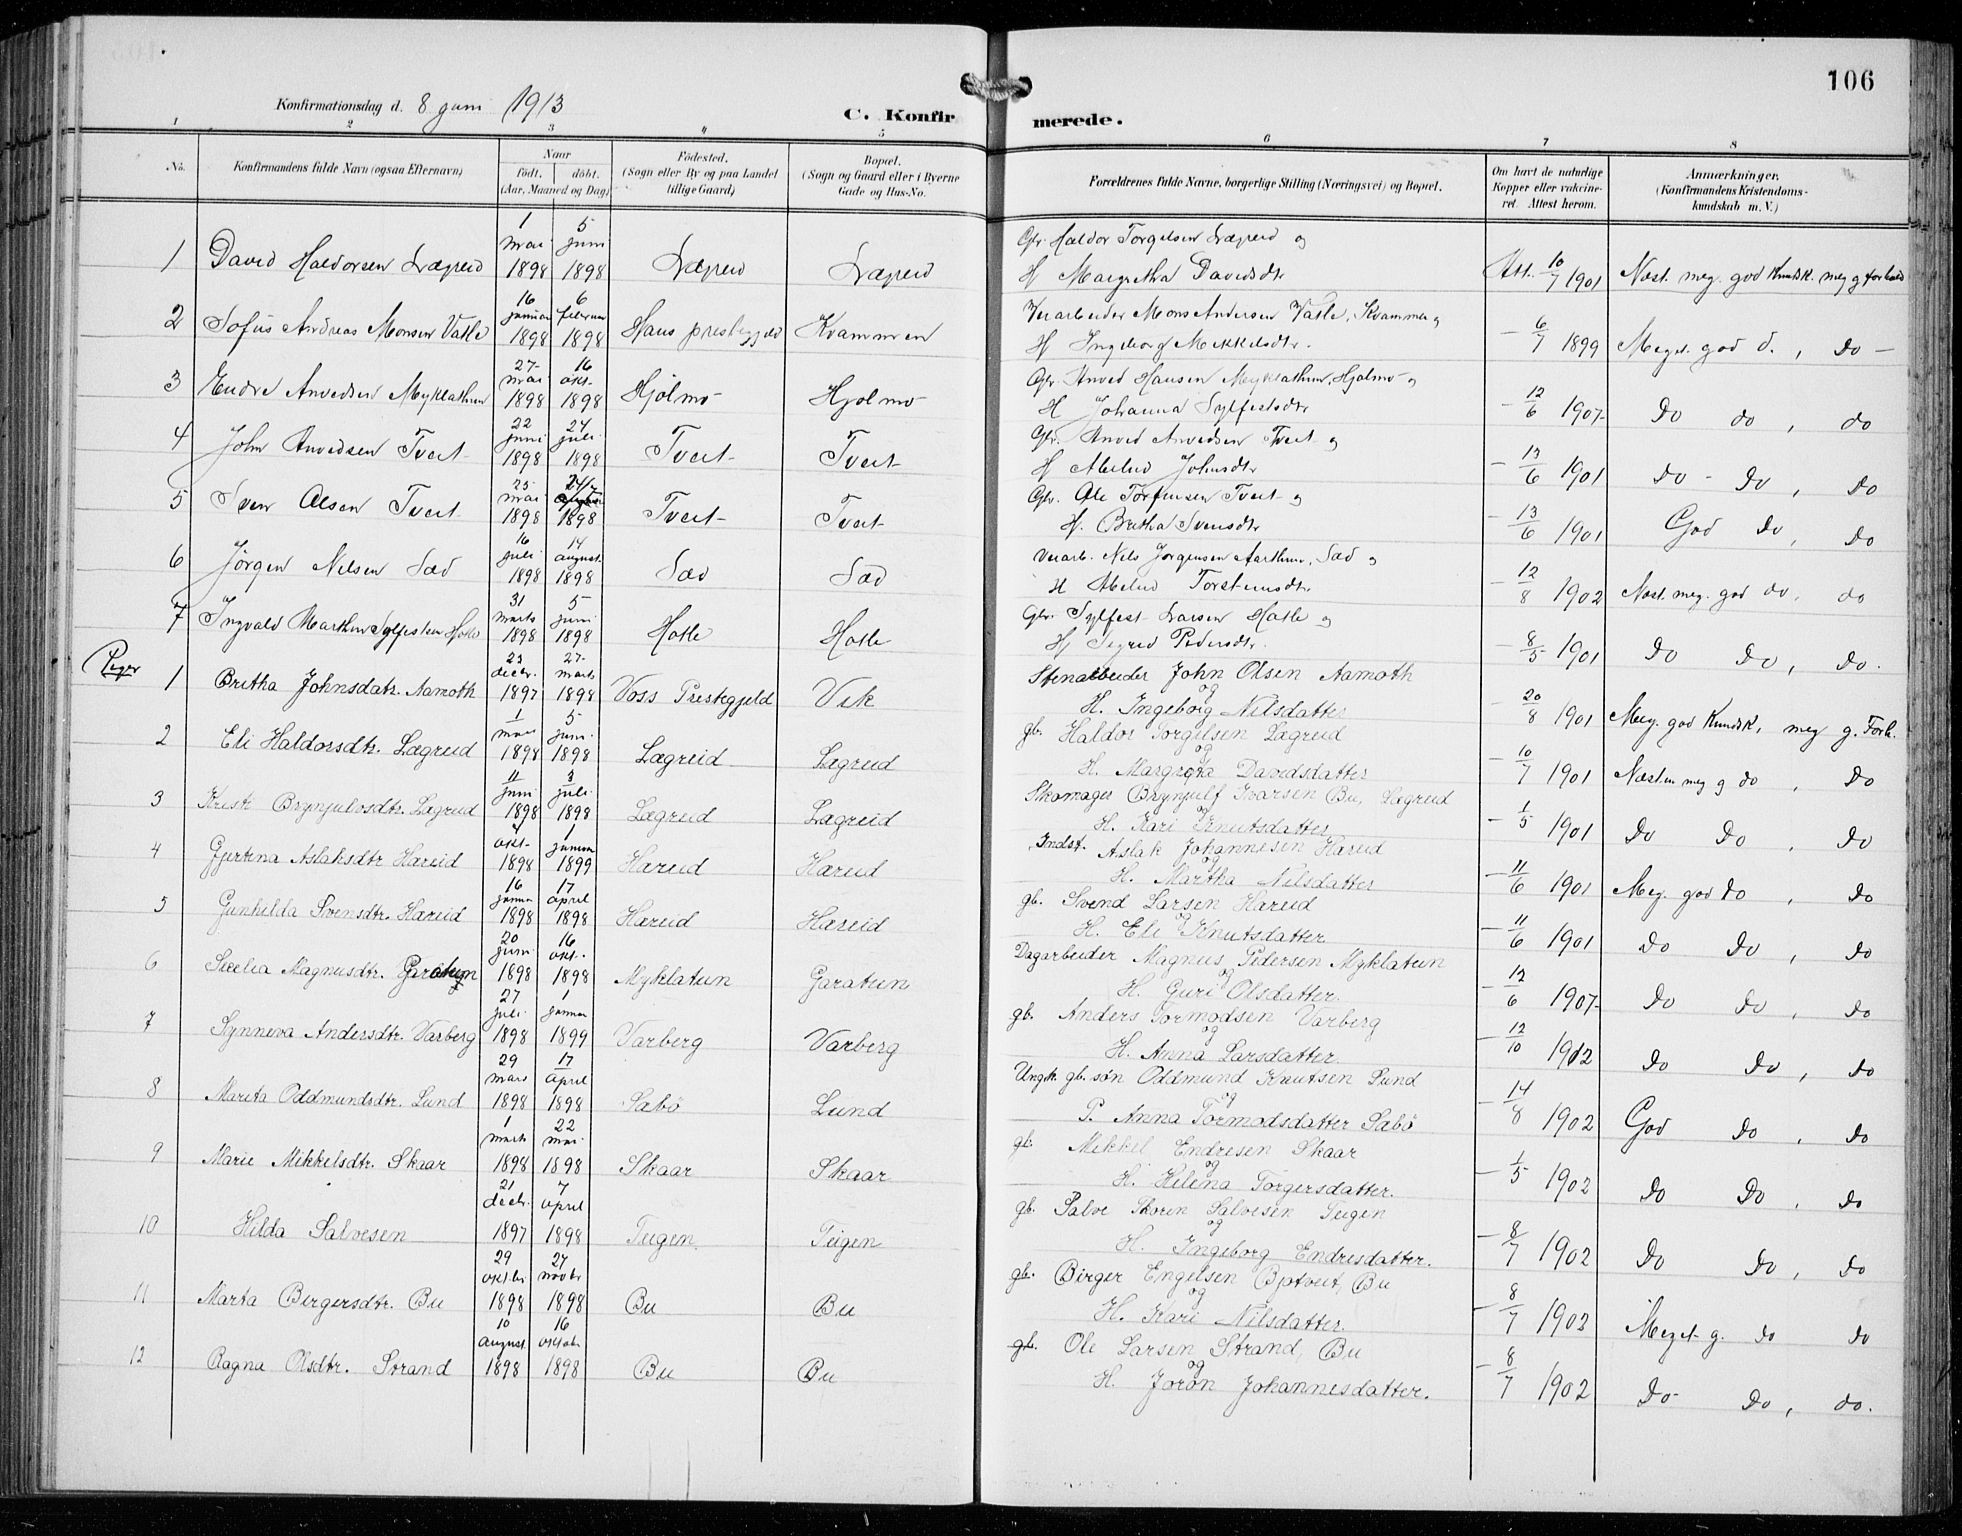 106
Konfirmationsdag d. 8 juni 1913
C. Konfirmerede.
1 2 3 4 5 6 7 8
No. Konfirmandens fulde Navn (ogsaa Efternavn) Naar født. døbt. (Aar, Maaned og Dag) Fødested. (Sogn eller By og paa Landet tillige Gaard) Bopæl. (Sogn og Gaard eller i Byerne Gade og Hus-No. Forældrenes fulde Navne, borgerlige Stilling (Næringsvei) og Bopæl. Om havt de naturlige Kopper eller vakcineret. Attest herom. Anmærkninger. (Konfirmandens Kristendomskundskab m. V.)
1 David Haldorsen Lægreid 1 mai 1898 5 juni 1898 Lægreid Lægreid Gbr. Haldor Torgelsen Lægreid og
H Margretha Davidsdtr Att. 10/7 1901 Næst. meg. god Kundsk. meg g forhold
2 Sofus Andreas Monsen Vatle 16 januar 1898 6 februar 1898 Haus prestegjeld Kvammen Veiarbeider Mons Andersen Vatle, Kvammen og
H Ingeborg Mikkelsdtr. - 6/7 1899 Meget god d. , do -
3 Endre Anvedsen Myklathun 27 mai 1898 16 okt. 1898 Hjølmo Hjølmo Gbr Anved Hansen Myklathun, Hjølmo og
H Johanna Sylfestsdtr - 12/6 1907 Do do , do
4 John Anvedsen Tveit 22 juni 1898 24 juli 1898 Tveit Tveit Gbr. Anved Anvedsen Tveit og
H Johnsdtr - 13/6 1901 Do - Do , Do
5 Sven Olsen Tveit 25 mai 1898 24/7 1898 Tveit Tveit Gbr. Ole Torfinsen Tveit og
H. Britha Svensdtr - 13/6 1901 God Do , Do
6 Jørgen Nilsen Sæd 16 juli 1898 14 august 1898 Sæd Sæd Veiarb. Nils Jørgensen Aarthun, Sæd og
H Torsteinsdtr - 12/8 1902 Næst. meg. god do , do
7 Ingvald Marthin Sylfesten Hotle 31 marts 1898 5 juni 1898 Hotle Hotle Gbr. Sylfest Larsen Hotle og
H Sigrid Pedersdtr. - 8/5 1901 Do Do , Do.
Piger
1 Britha Johnsdatr. Aamoth 23 decbr. 1897 27 marts 1898 Voss Prestegjeld Vik Stenarbeider John Olsen Aamoth
og
H. Ingeborg Nilsdatter - 20/8 1901 Meg. god Kundsk, meg g. Forh.
2 Eli Haldorsdtr. Lægreid 1 mai 1898 5 juni 1898 Lægreid Lægreid gb. Haldor Torgelsen Lægreid
og
H. Margreta Davidsdatter - 10/7 1901 Næsten meg g do , Do
3 Kristi Brynjulvsdtr. Lægreid 11 juni 1898 3 juli 1898 Lægreid Lægreid Skomager Brynjulf Ivarsen Bu, Lægreid
og
H. Kari Knutsdatter - 1/5 1901 Do Do , Do
4 Gjertina Aslaksdtr Hæreid 4 okt. 1898 1 januar 1899 Hæreid Hæreid Indst. Aslak Johannesen Hæreid
og
H. Martha Nilsdatter - 11/6 1901 Meg. god do , Do
5 Gunhilda Svensdtr. Hæreid 16 januar 1898 17 april 1898 Hæreid Hæreid gb. Svend Larsen Hæreid
og
H. Eli Knutsdatter - 11/6 1901 Do Do , Do
6 Sicelia Magnusdtr. Garatun 20 juni 1898 16 okt. 1898 Myklatun Garatun Dagarbeider Magnus Pedersen Myklatun
og
H. Guri Olsdatter. - 12/6 1907 Do Do , Do
7 Synneva Andersdtr. Varberg 27 juli 1898 1 januar 1899 Varberg Varberg gb. Anders Tormodsen Varberg
og
H. Anna Larsdatter. - 12/10 1912 Do Do , Do
8 Marita Oddmundsdtr. Lund 29 mars 1898 17 april 1898 Sæbø Lund Ungk. gb. søn Oddmund Knutsen Lund
og
P. Anna Tormodsdatter Sæbø - 14/8 1902 God Do , Do
9 Marie Mikkelsdtr. Skaar 1 marts 1898 22 mai 1898 Skaar Skaar gb. Mikkel Endresen Skaar
og
H. Helena Torgersdatter. - 1/5 1902 Do Do , do
10 Hilda Salvesen 21 decbr. 1897 7 april 1898 Teigen Teigen gb. Salve Salvesen Teigen
og
H. Ingeborg Endresdatter. - 8/7 1902 Do Do , Do
11 Marta Birgersdtr. Bu 29 oktbr 1898 27 novbr 1898 Bu Bu gb. Birger Engelsen Bjotveit, Bu
og
H. Kari Nilsdatter. - 8/7 1902 Meget g. do do
12 Ragna Olsdtr. Strand 10 august 1898 16 oktob 1898 Bu Bu gb. Ole Larsen Strand, Bu
og
H. Jorøn Johannesdatter. - 8/7 1902 Do Do , do.